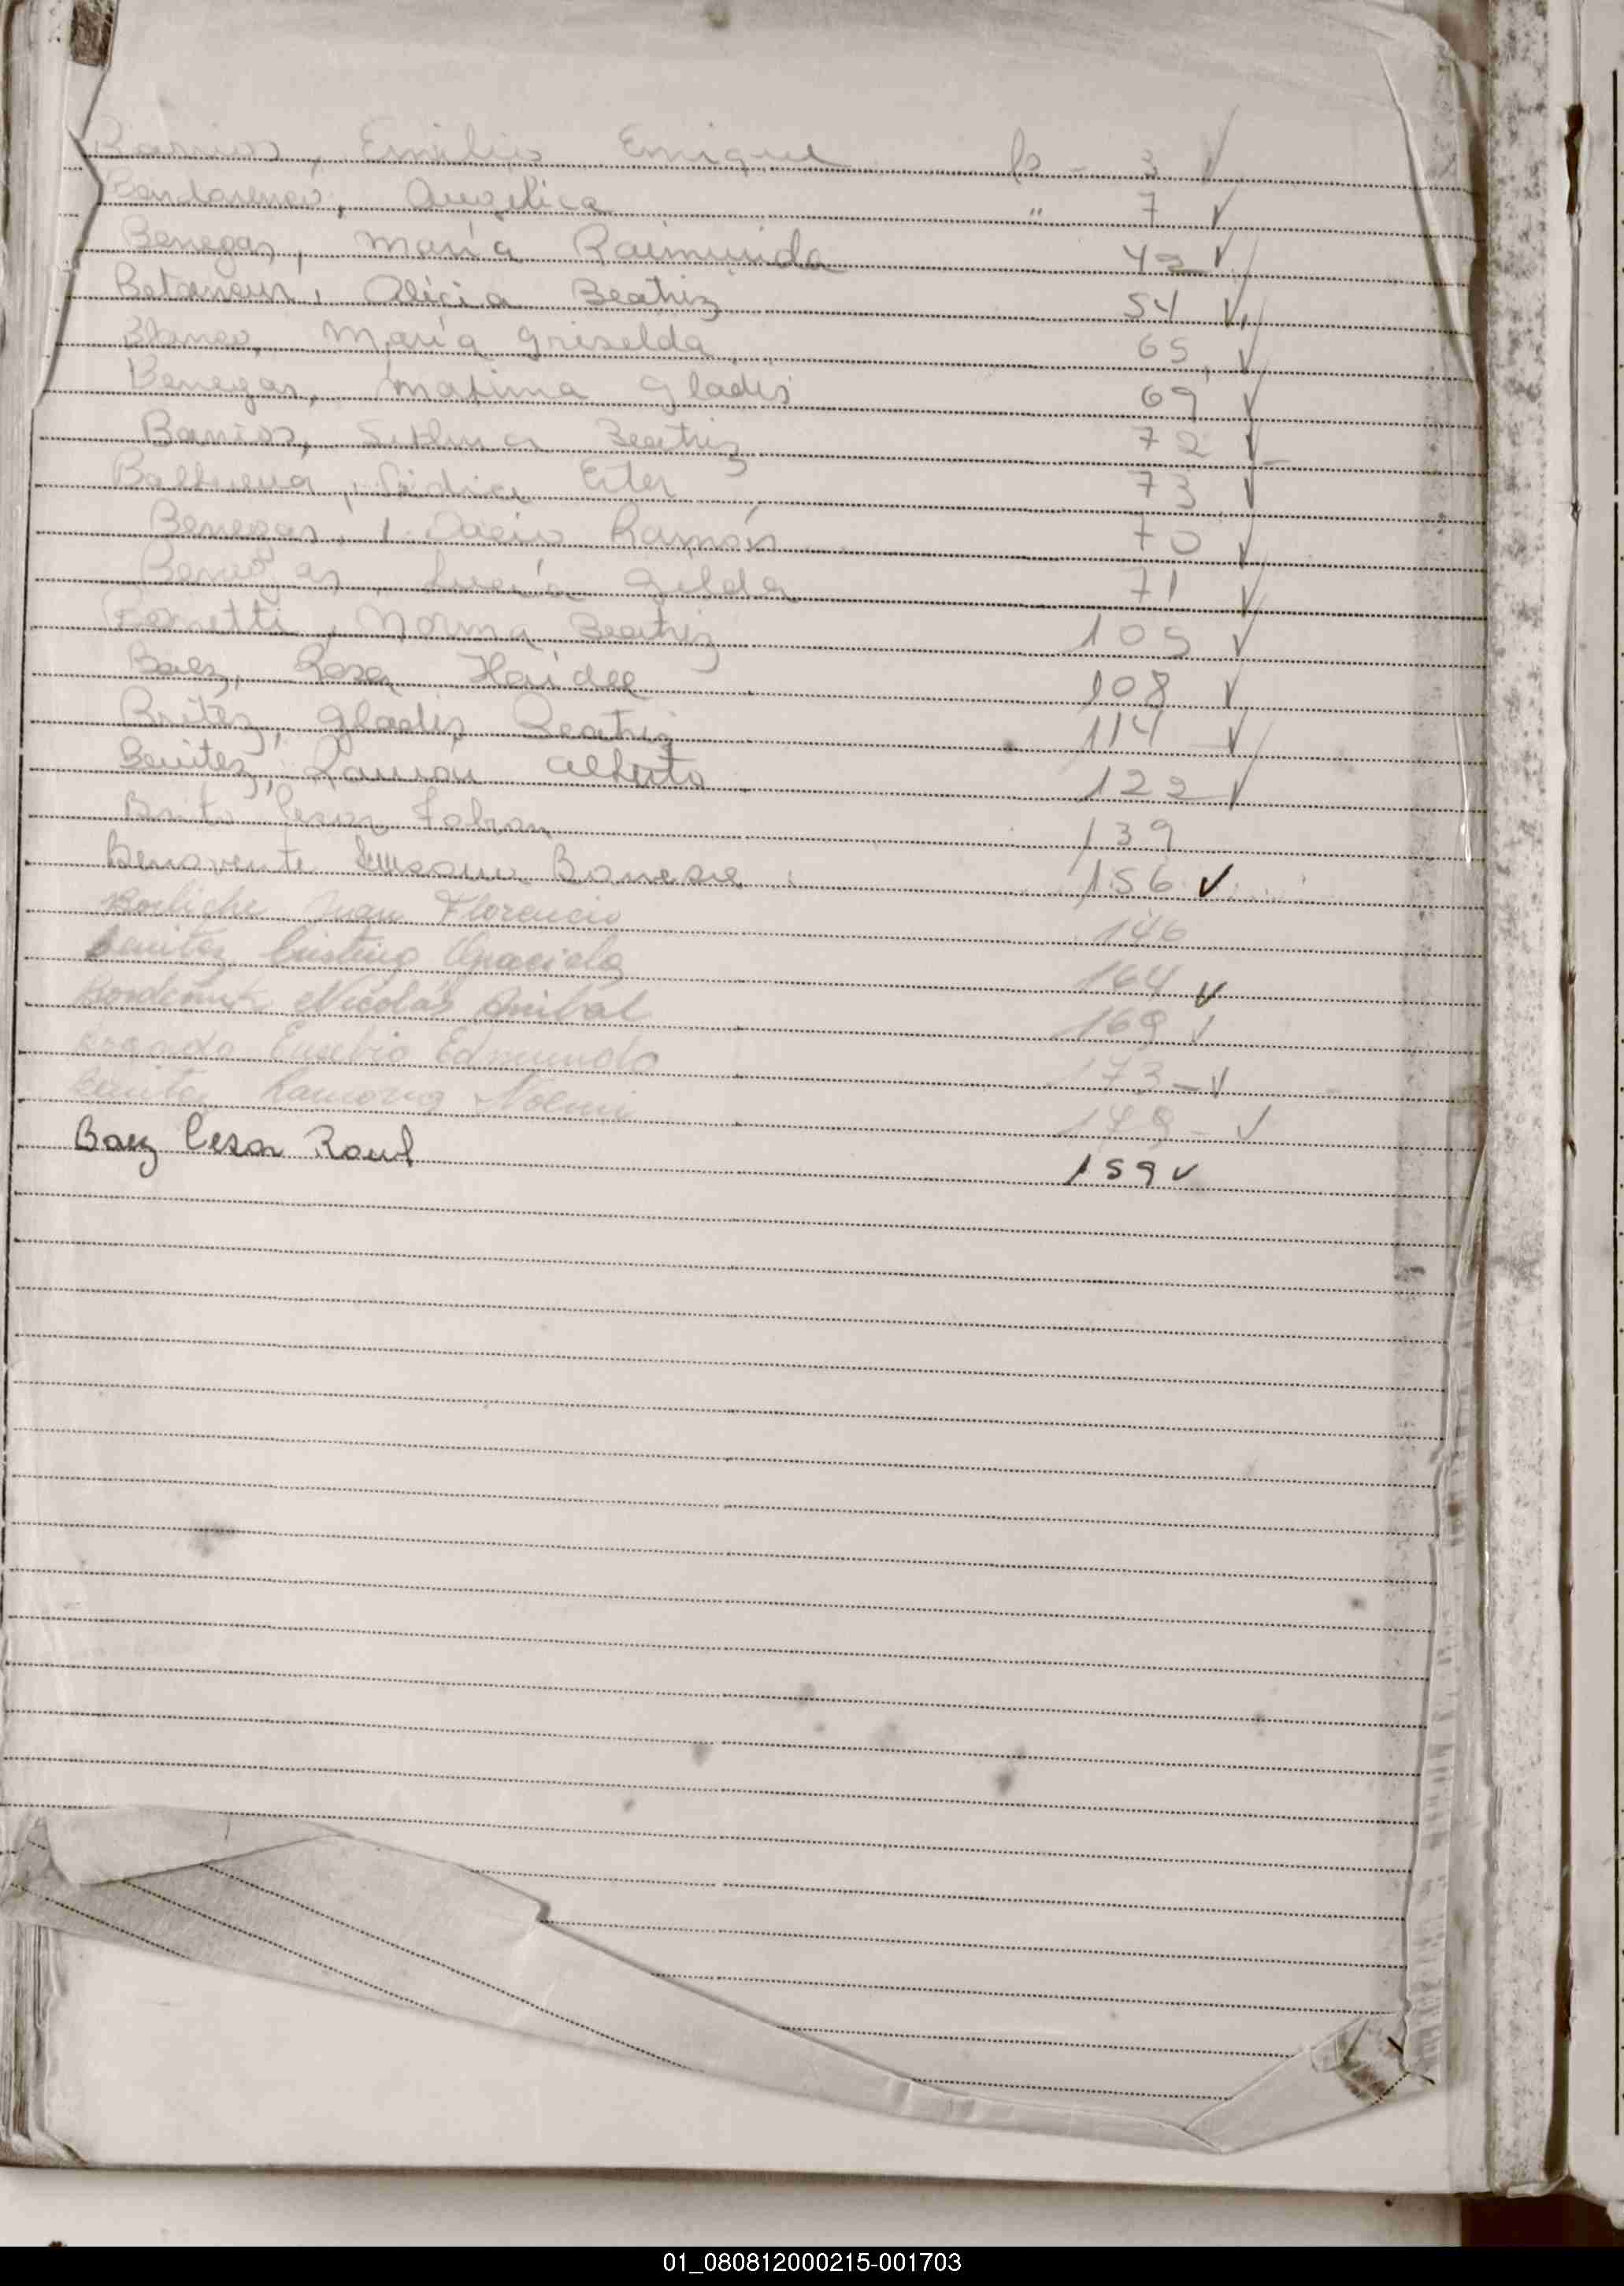 Barrios, Emilio Enrique fo - 3 ✓
Angélica " 7 ✓
Benegas, María Raimunda 42 ✓
Betancur, Alicia Beatriz 54 ✓
Blanco, María Griselda 65 ✓
Benegas, Gladis 69 ✓
Barrios, Beatriz 72 ✓
Ester 73 ✓
Benegas, Ramón 70 ✓
Benegas, Lucía Gilda 71 ✓
Norma Beatriz 105 ✓
Baez, Rosa Haidee 108 ✓
Britez, Gladis Beatriz 114 ✓
Benitez, Ramon Alberto 122 ✓
Brito Cesar Fabian 139
Benavente 156 ✓
Juan Florencio 146
Benitez Cristina Graciela 164 ✓
Nicolás Anibal 169 ✓
Eusebio Edmundo 173 - ✓
Benitez Ramona Noemi 179 - ✓
Baez Cesar Raul 159 ✓
01_080812000215-001703